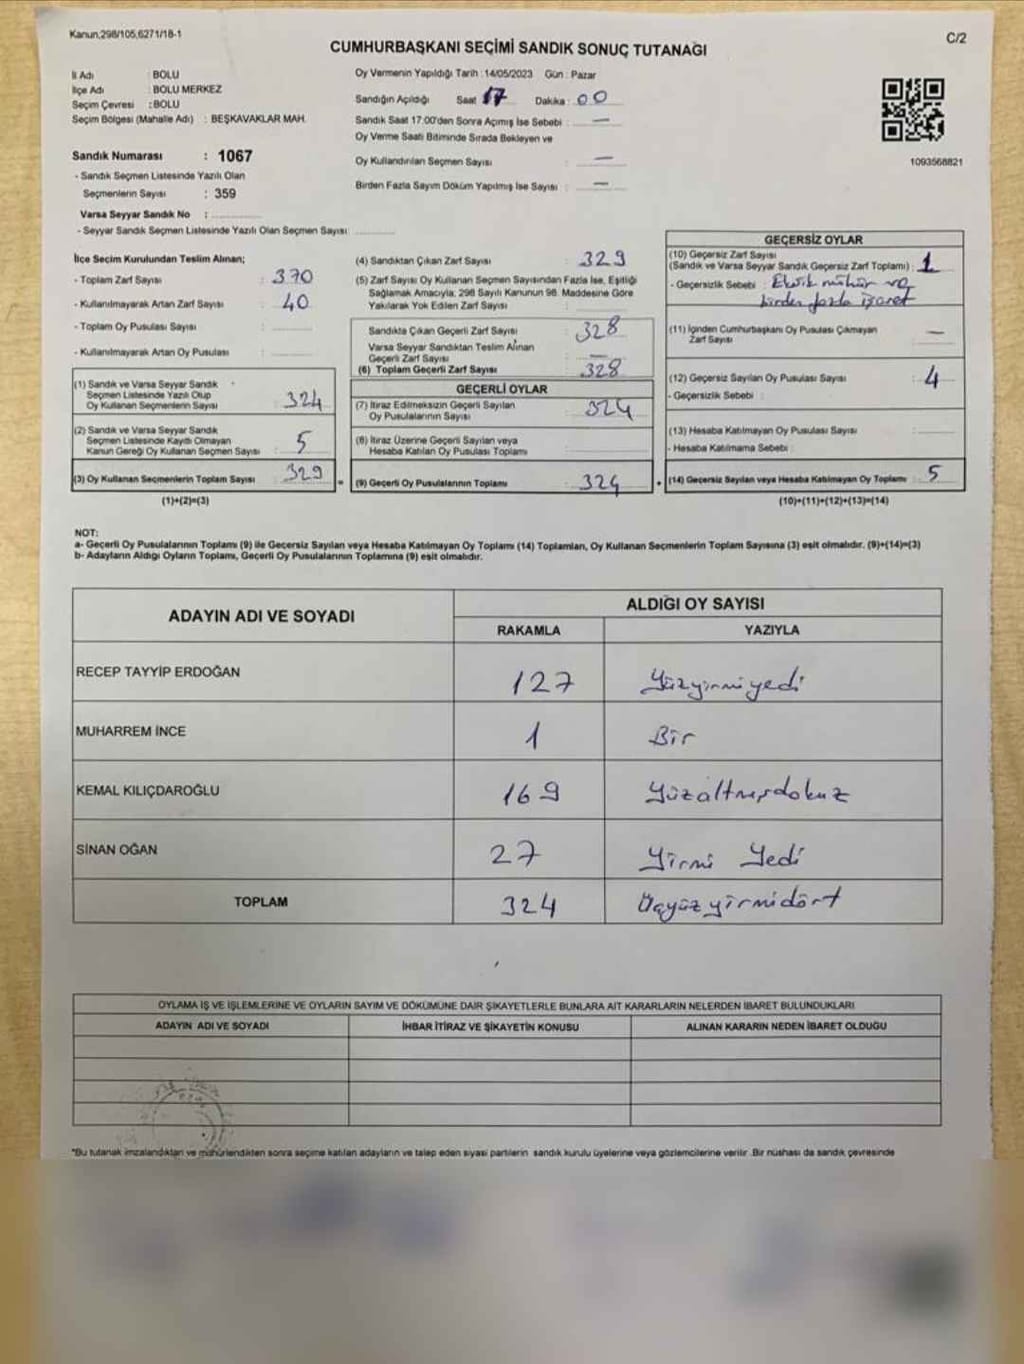 Kanun,298/105,6271/18-1
C/2
CUMHURBAŞKANI SEÇİMİ SANDIK SONUÇ TUTANAĞI
İl Adı : BOLU
İlçe Adı : BOLU MERKEZ
Seçim Çevresi : BOLU
Seçim Bölgesi (Mahalle Adı) : BEŞKAVAKLAR MAH.
Sandık Numarası : 1067
- Sandık Seçmen Listesinde Yazılı Olan
Seçmenlerin Sayısı : 359
Varsa Seyyar Sandık No :
- Seyyar Sandık Seçmen Listesinde Yazılı Olan Seçmen Sayısı:
Oy Vermenin Yapıldığı Tarih : 14/05/2023 Gün : Pazar
Sandığın Açıldığı Saat 17 Dakika : 00
Sandık Saat 17:00'den Sonra Açımış İse Sebebi : —
Oy Verme Saati Bitiminde Sırada Bekleyen ve
Oy Kullandırılan Seçmen Sayısı : —
Birden Fazla Sayım Döküm Yapılmış İse Sayısı : —
1093568821
İlçe Seçim Kurulundan Teslim Alınan;
- Toplam Zarf Sayısı : 370
- Kullanılmayarak Artan Zarf Sayısı : 40
- Toplam Oy Pusulası Sayısı :
- Kullanılmayarak Artan Oy Pusulası :
(1) Sandık ve Varsa Seyyar Sandık
Seçmen Listesinde Yazılı Olup
Oy Kullanan Seçmenlerin Sayısı : 324
(2) Sandık ve Varsa Seyyar Sandık
Seçmen Listesinde Kayıtlı Olmayan
Kanun Gereği Oy Kullanan Seçmen Sayısı : 5
(3) Oy Kullanan Seçmenlerin Toplam Sayısı : 329
(1)+(2)=(3)
(4) Sandıktan Çıkan Zarf Sayısı : 329
(5) Zarf Sayısı Oy Kullanan Seçmen Sayısından Fazla İse, Eşitliği
Sağlamak Amacıyla, 298 Sayılı Kanunun 98. Maddesine Göre
Yakılarak Yok Edilen Zarf Sayısı :
Sandıkta Çıkan Geçerli Zarf Sayısı : 328
Varsa Seyyar Sandıktan Teslim Alınan
Geçerli Zarf Sayısı : —
(6) Toplam Geçerli Zarf Sayısı : 328
GEÇERLİ OYLAR
(7) İtiraz Edilmeksizin Geçerli Sayılan
Oy Pusulalarının Sayısı : 324
(8) İtiraz Üzerine Geçerli Sayılan veya
Hesaba Katılan Oy Pusulası Toplamı :
(9) Geçerli Oy Pusulalarının Toplamı : 324
GEÇERSİZ OYLAR
(10) Geçersiz Zarf Sayısı
(Sandık ve Varsa Seyyar Sandık Geçersiz Zarf Toplamı) : 1
- Geçersizlik Sebebi : Eksik mühür ve
birden fazla işaret
(11) İçinden Cumhurbaşkanı Oy Pusulası Çıkmayan
Zarf Sayısı : —
(12) Geçersiz Sayılan Oy Pusulası Sayısı : 4
- Geçersizlik Sebebi :
(13) Hesaba Katılmayan Oy Pusulası Sayısı :
- Hesaba Katılmama Sebebi :
(14) Geçersiz Sayılan veya Hesaba Katılmayan Oy Toplamı : 5
(10)+(11)+(12)+(13)=(14)
NOT:
a- Geçerli Oy Pusulalarının Toplamı (9) ile Geçersiz Sayılan veya Hesaba Katılmayan Oy Toplamı (14) Toplamları, Oy Kullanan Seçmenlerin Toplam Sayısına (3) eşit olmalıdır. (9)+(14)=(3)
b- Adayların Aldığı Oyların Toplamı, Geçerli Oy Pusulalarının Toplamına (9) eşit olmalıdır.
ADAYIN ADI VE SOYADI
ALDIĞI OY SAYISI
RAKAMLA YAZIYLA
RECEP TAYYİP ERDOĞAN 127 Yüzyirmiyedi
MUHARREM İNCE 1 Bir
KEMAL KILIÇDAROĞLU 169 Yüzaltmışdokuz
SİNAN OĞAN 27 Yirmi Yedi
TOPLAM 324 Üçyüzyirmidört
OYLAMA İŞ VE İŞLEMLERİNE VE OYLARIN SAYIM VE DÖKÜMÜNE DAİR ŞİKAYETLERLE BUNLARA AİT KARARLARIN NELERDEN İBARET BULUNDUKLARI
ADAYIN ADI VE SOYADI İHBAR İTİRAZ VE ŞİKAYETİN KONUSU ALINAN KARARIN NEDEN İBARET OLDUĞU
*Bu tutanak imzalandıktan ve mühürlendikten sonra seçime katılan adayların ve talep eden siyasi partilerin sandık kurulu üyelerine veya gözlemcilerine verilir. Bir nüshası da sandık çevresinde